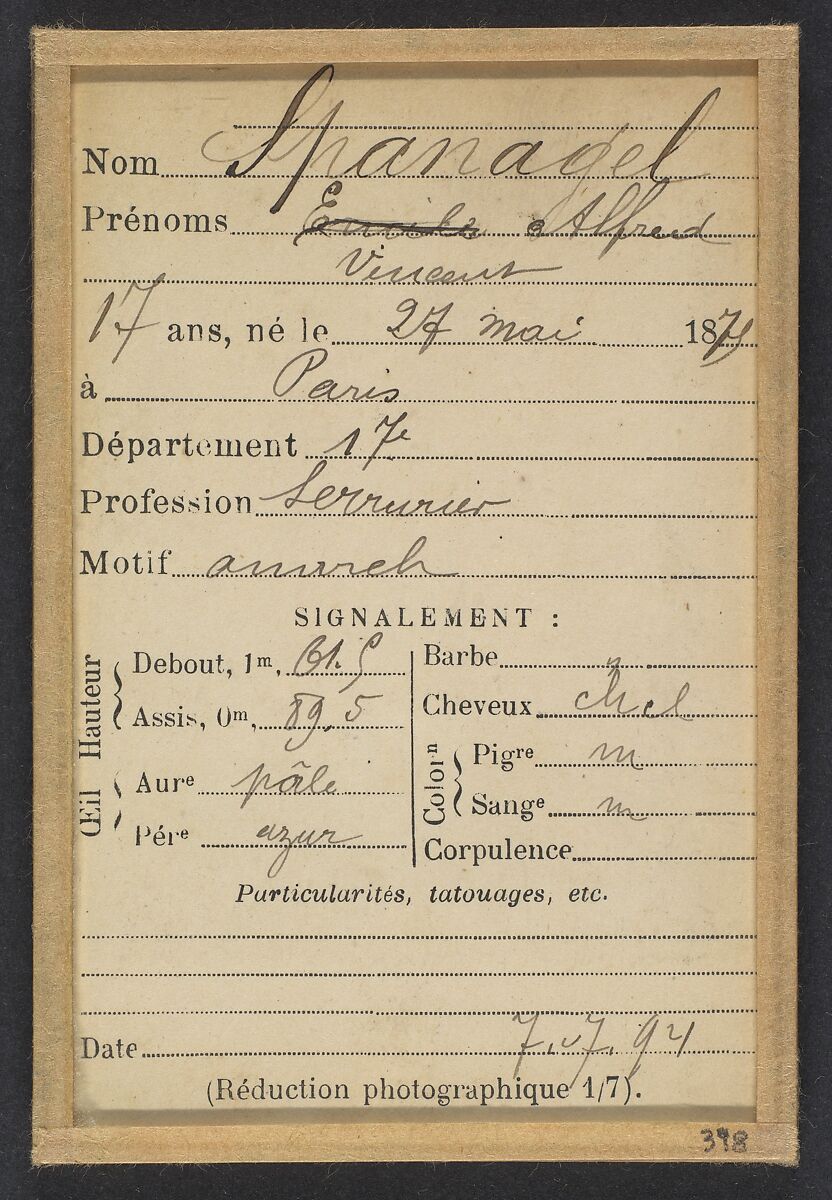 Nom Spanagel
Prénoms Emile Alfred
Vincent
17 ans, né le 27 mai 1875
à Paris
Département 17e
Profession Serrurier
Motif anarch
SIGNALEMENT :
Hauteur
Debout, 1m, 61.5
Assis, 0m, 89,5
Œil
Aure pâle
Pére azur
Barbe "
Cheveux
Colorn
Pigre m
Sange m
Corpulence
Particularités, tatouages, etc.
Date 7.7.94
(Réduction photographique 1/7).
398